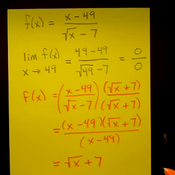 f(x) = x-49 / √x - 7
lim f(x) x→49 = 49-49 / √49 -7 = 0/0
f(x) = (x-49 / √x -7) (√x +7 / √x +7)
= (x-49)(√x +7) / (x-49)
= √x + 7